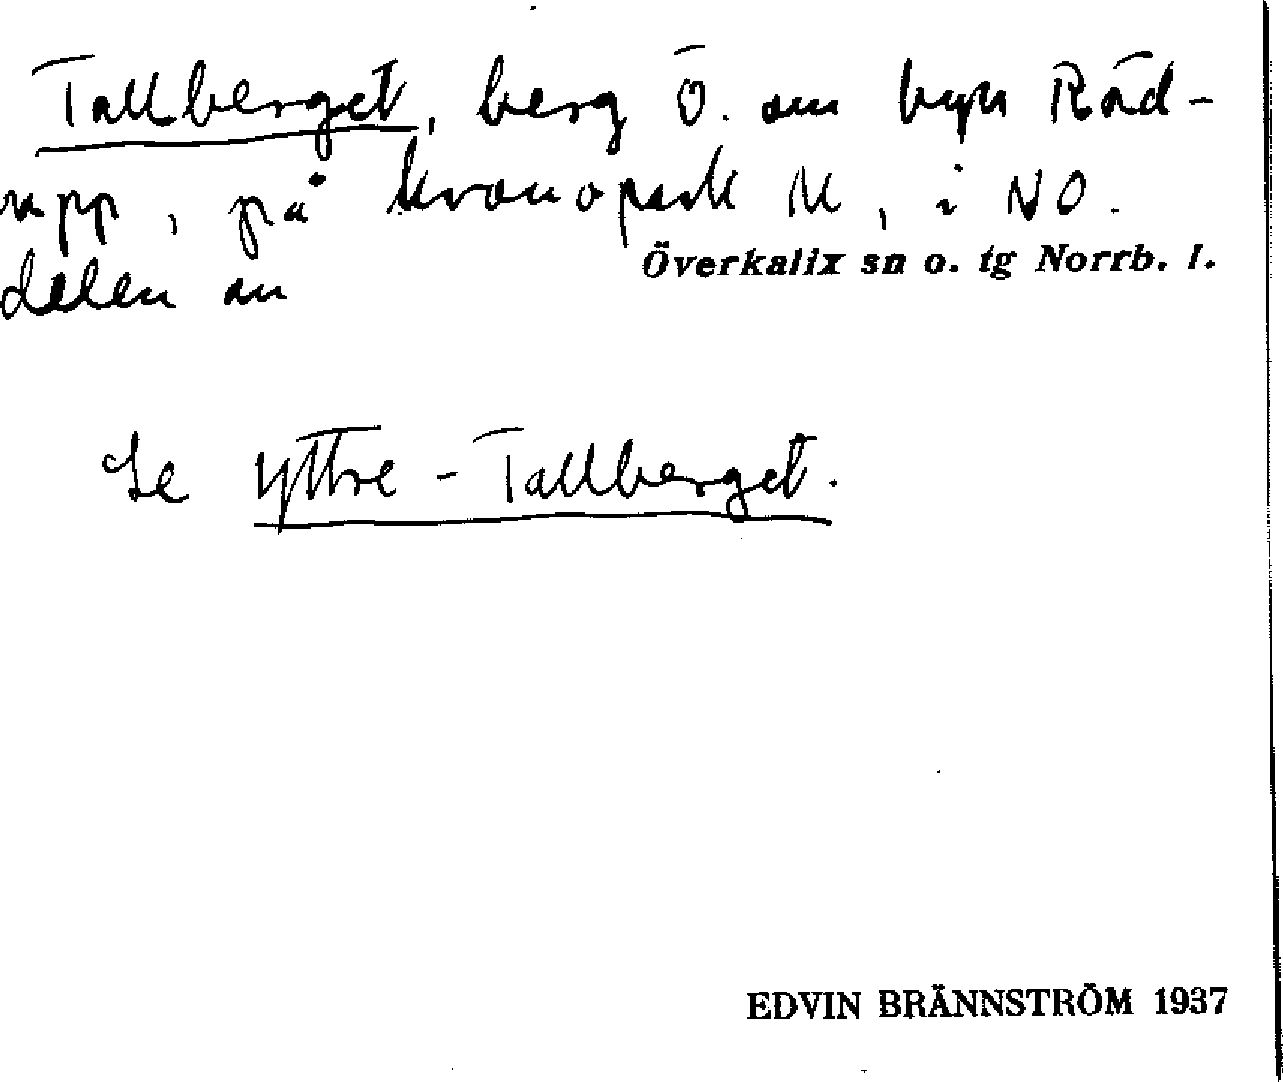 Tallberget, berg Ö. om byn Råd-
rupp, på kronopark M, i NO.
delen av
Överkalix sn o. tg Norrb. l.
Se Yttre-Tallberget.
EDVIN BRÄNNSTRÖM 1937